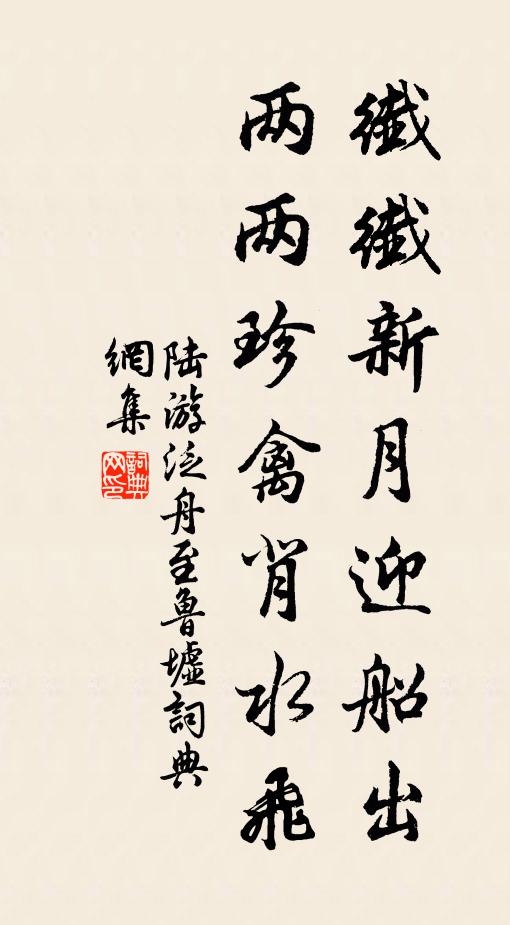 纖纖新月迎船出
两两珍禽背水飛
陆游泛舟至魯墟詞典
網集
詞典
网印